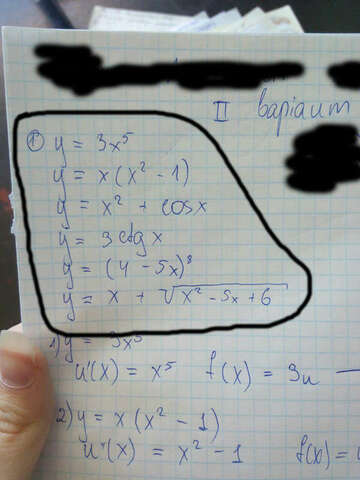 II варіант
1) y = 3x⁵
y = x(x² - 1)
y = x² + cosx
y = 3ctgx
y = (4 - 5x)⁸
y = x + √x² - 5x + 6
1) y = 3x⁵
u'(x) = x⁵ f(x) = 3u
2) y = x(x² - 1)
u'(x) = x² - 1 f(x) =